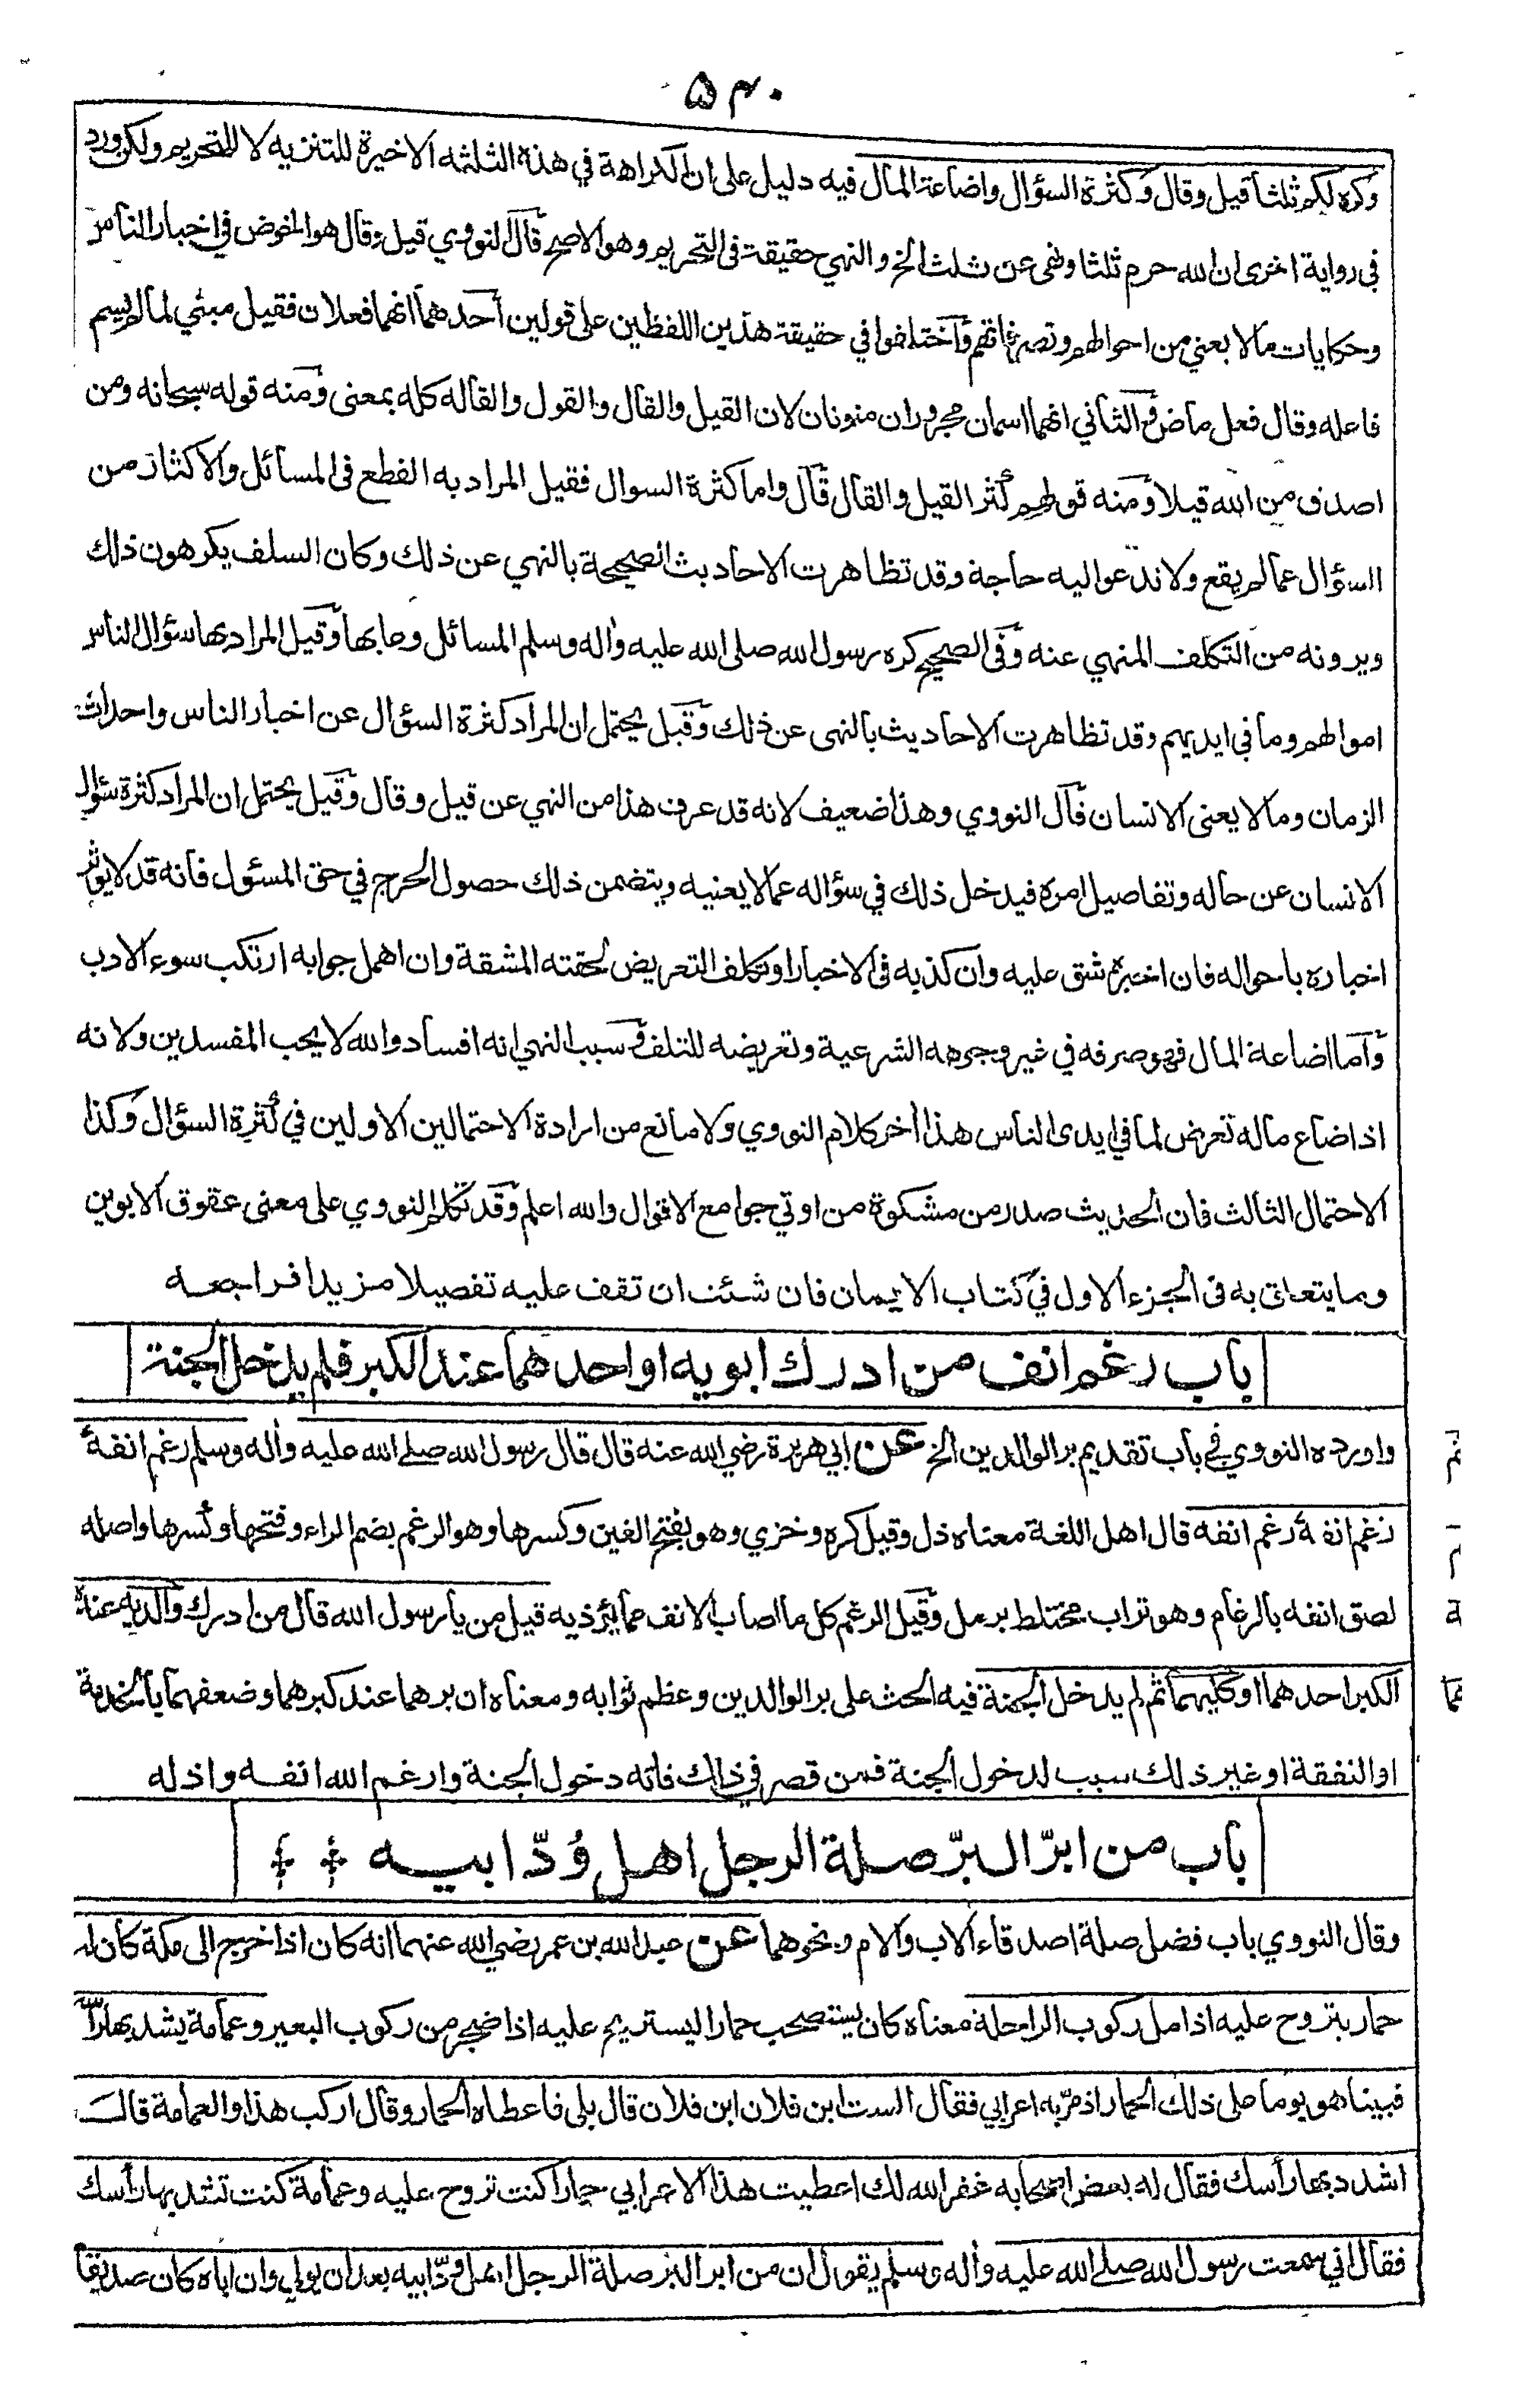 ٥٣٠
وكره لكم ثلثا قيل وقال وكثرة السؤال واضاعة المال فيه دليل على ان الكراهة في هذه الثلثه الاخيرة للتنزيه لا للتحريم ولكن ورد
في رواية اخرى ان الله حرم ثلثا ونهى عن ثلث الخ والنهي حقيقة في التحريم وهو الاصح قال النووي قيل وقال هو الخوض في اخبار الناس
وحكايات ما لا يعني من احوالهم وتصرفاتهم واختلفوا في حقيقة هذين اللفظين على قولين أحدهما انهما فعلان فقيل مبني لما لم يسم
فاعله وقال فعل ماض والثاني انهما اسمان مجروران منونان لان القيل والقال والقول والقاله كله بمعنى ومنه قوله سبحانه ومن
اصدق من الله قيلا ومنه قولهم كثر القيل والقال قال واما كثرة السوال فقيل المراد به القطع في المسائل والاكثار من
السؤال عما لم يقع ولا ندعو اليه حاجة وقد تظاهرت الاحاديث الصحيحة بالنهي عن ذلك وكان السلف يكرهون ذلك
ويرونه من التكلف المنهي عنه وفي الصحيح كره رسول الله صلى الله عليه واله وسلم المسائل وعابها وقيل المراد بها سؤال الناس
اموالهم وما في ايديهم وقد تظاهرت الاحاديث بالنهى عن ذلك وقيل يحتمل ان المراد كثرة السؤال عن اخبار الناس واحداث
الزمان وما لا يعنى الانسان قال النووي وهذا ضعيف لانه قد عرف هذا من النهي عن قيل وقال وقيل يحتمل ان المراد كثرة سؤال
الانسان عن حاله وتفاصيل امره فيدخل ذلك في سؤاله عما لا يعنيه ويتضمن ذلك حصول الحرج في حق المسئول فانه قد لا يوثر
اخباره باحواله فان اخبره شق عليه وان كذبه في الاخبار او تكلف التعريض لحقته المشقة وان اهمل جوابه ارتكب سوء الادب
وأما اضاعة المال فهو صرفه في غير وجوهه الشرعية وتعريضه للتلف وسبب النهي انه افساد والله لا يحب المفسدين ولانه
اذا ضاع ماله تعرض لما في ايدى الناس هذا أخر كلام النووي ولا مانع من ارادة الاحتمالين الاولين في كثرة السؤال وكذا
الاحتمال الثالث فان الحديث صدر من مشكوة من اوتي جوامع الاقوال والله اعلم وقد تكلم النووي على معنى عقوق الابوين
وما يتعلق به في الجزء الاول في كتاب الايمان فان شئت ان تقف عليه تفصيلا مزيدا فراجعه
باب رغم انف من ادرك ابويه او احدهما عند الكبر فلم يدخل الجنة
واورده النووي في باب تقديم بر الوالدين الخ عن ابي هريرة رضي الله عنه قال قال رسول الله صلے الله عليه وأله وسلم رغم انفه
رغم انفه رغم انفه قال اهل اللغة معناه ذل وقيل كره وخزي وهو بفتح الغين وكسرها وهو الرغم بضم الراء وفتحها وكسرها واصله
لصق انفه بالرغام وهو تراب مختلط برمل وقيل الرغم كل ما اصاب الانف مما يؤذيه قيل من يا رسول الله قال من ادرك والديه عنده
الكبر احدهما او كليهما ثم لم يدخل الجنة فيه الحث على بر الوالدين وعظم ثوابه ومعناه ان برهما عند كبرهما وضعفهما بالخدمة
او النفقة او غير ذلك سبب لدخول الجنة فمن قصر في ذلك فاته دخول الجنة وارغم الله انفه واذله
باب من ابرّ البرّ صلة الرجل اهل وُدّ ابيه
وقال النووي باب فضل صلة اصدقاء الاب والام ونحوهما عن عبد الله بن عمر رضي الله عنهما انه كان اذا خرج الى مكة كان له
حمار يتروح عليه اذا مل ركوب الراحلة معناه كان يستصحب حمارا ليستريح عليه اذا ضجر من ركوب البعير وعمامة يشد بها رأسه
فبينا هو يوما على ذلك الحمار اذ مرّ به اعرابي فقال الست ابن فلان ابن فلان قال بلى فاعطاه الحمار وقال اركب هذا والعمامة قال
اشدد بها رأسك فقال له بعض اصحابه غفر الله لك اعطيت هذا الاعرابي حمارا كنت تروح عليه وعمامة كنت تشد بها رأسك
فقال اني سمعت رسول الله صلے الله عليه وأله وسلم يقول ان من ابر البر صلة الرجل اهل ودّ ابيه بعد ان يولي وان اباه كان صديقا